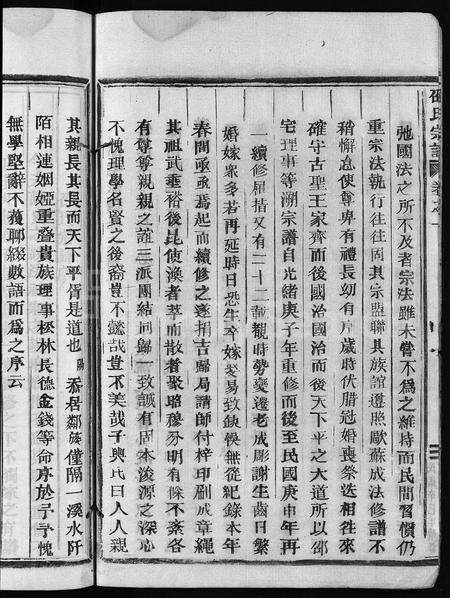 邵氏宗譜 卷之一
弛國法之所不及者宗法雖未嘗不爲之維持而民間習慣仍
重宗法執行往往固其宗盟聯其族誼遵照歐蘇成法修譜不
稍懈怠使尊卑有禮長幼有序歲時伏臘冠婚喪祭迭相往來
確守古聖王家齊而後國治國治而後天下平之大道所以邵
宅理事等溯宗譜自光緒庚子年重修而後至民國庚申年再
一續修屈指又有二十二載觀時勢變遷老成彫謝生齒日繁
婚嫁衆多若再延時日恐生卒嫁娶易致缺悞無從紀錄本年
春間亟亟焉起而續修之遂捐吉歸局請師付梓印刷成章繩
其祖武垂裕後昆使渙者萃而散者聚昭穆分明有條不紊各
有尊尊親親之誼三派團結同歸一致誠有固本浚源之深心
不愧理學名賢之後裔豈不懿哉豈不美哉子輿氏曰人人親
其親長其長而天下平胥是道也陽忝居鄰族僅隔一溪水阡
陌相連姻婭重叠貴族理事松林長德金錢等命序於予予愧
無學堅辭不獲聊綴數語而爲之序云